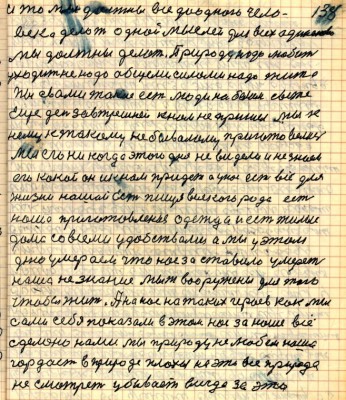 138
и то мы должны все до одного чело-
века делат одной мыслей для всех одинаково
мы должны делат. Природу надо любит
уходит не надо общеми силами надо жит
Мы с вами такие ест люди на белом свете
Еще ден завтрешней к нам не пришел мы к
нему к такому небывалому приготовелис
Мы его никогда этого дня не видели и не знаем
его какой он к нам придет а у нас ест всё для
жизни нашей Ест пища всякого рода ест
наша приготовленая одежда и ест жилые
дома со всеми удобствами а мы у этом
дню умераем что нас заставило умерет
наша не знание мы ж вооружены для того
чтобы жит. А на нас на таких героев как мы
сами себя показали в этом нас за наше всё
сделано нами мы природу не любем наша
гордаст в природе плохая на это все природа
не смотрет убывает всегда за это